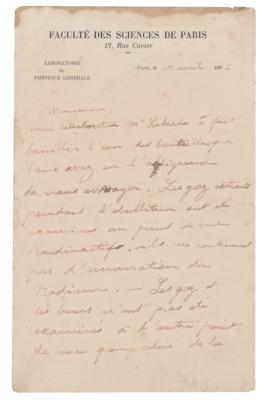 FACULTÉ DES SCIENCES DE PARIS
12, Rue Cuvier
LABORATOIRE
de
PHYSIQUE GÉNÉRALE
Paris, le avril 190
Monsieur
mon collaborateur Mr Laborde a fait
bouillir l'eau des bouteilles que
vous avez eu l'obligeance
de nous envoyer. Les gaz extraits
pendant l'ébullition ont été
examinés au point de vue
radioactif. ils ne contiennent
pas d'émanation du
radium. — Les gaz et
des boues n'ont pas été
examinés à d'autre point
de vue que celui de la